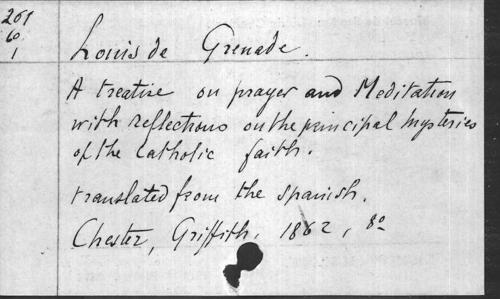 261
6
1
Louis de Grenade.
A treatise on prayer and Meditation
with reflections on the principal mysteries
of the Catholic faith.
translated from the spanish.
Chester, Griffith, 1862, 8º